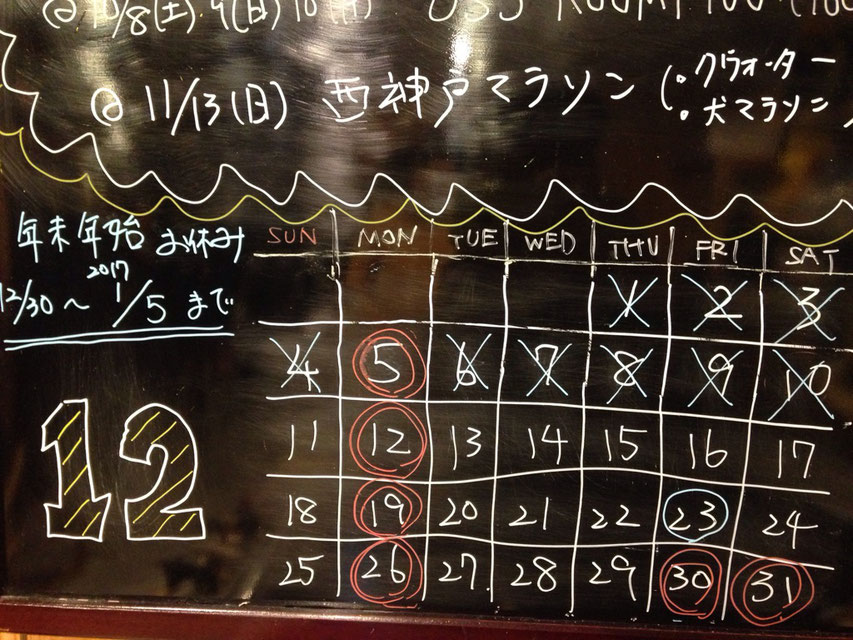 @ 10/8(土) 9(日) 10
@ 11/13(日) 西神戸マラソン (・クウォーター
・犬マラソン)
年末年始 お休み
12/30～2017 1/5 まで
12
SUN MON TUE WED THU FRI SAT
1 2 3
4 5 6 7 8 9 10
11 12 13 14 15 16 17
18 19 20 21 22 23 24
25 26 27 28 29 30 31